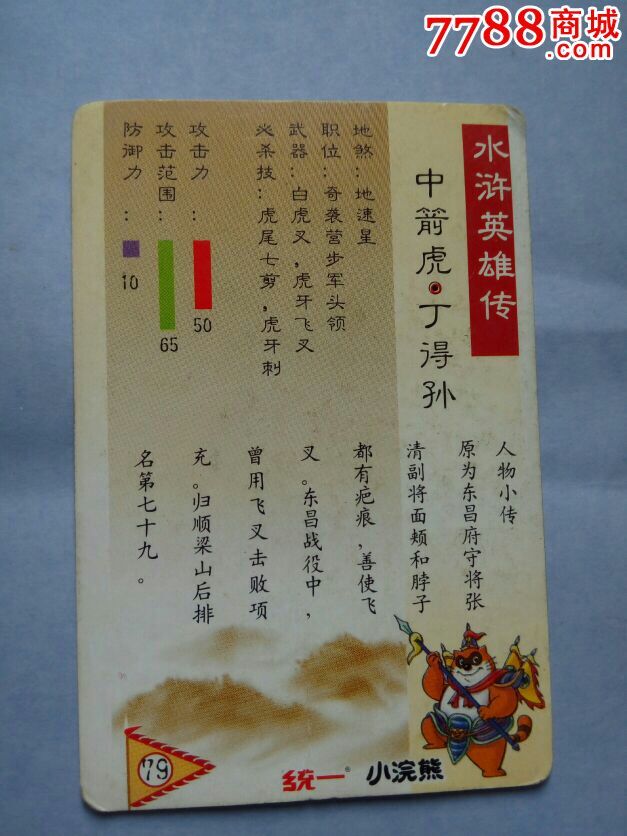 7788商城
水浒英雄传
中箭虎·丁得孙
地煞：地速星
职位：奇袭营步军头领
武器：白虎叉，虎牙飞叉
必杀技：虎尾七剪，虎牙刺
攻击力：
50
攻击范围：
65
防御力：
10
人物小传
原为东昌府守将张
清副将面颊和脖子
都有疤痕，善使飞
叉。东昌战役中，
曾用飞叉击败项
充。归顺梁山后排
名第七十九。
79
统一®
小浣熊